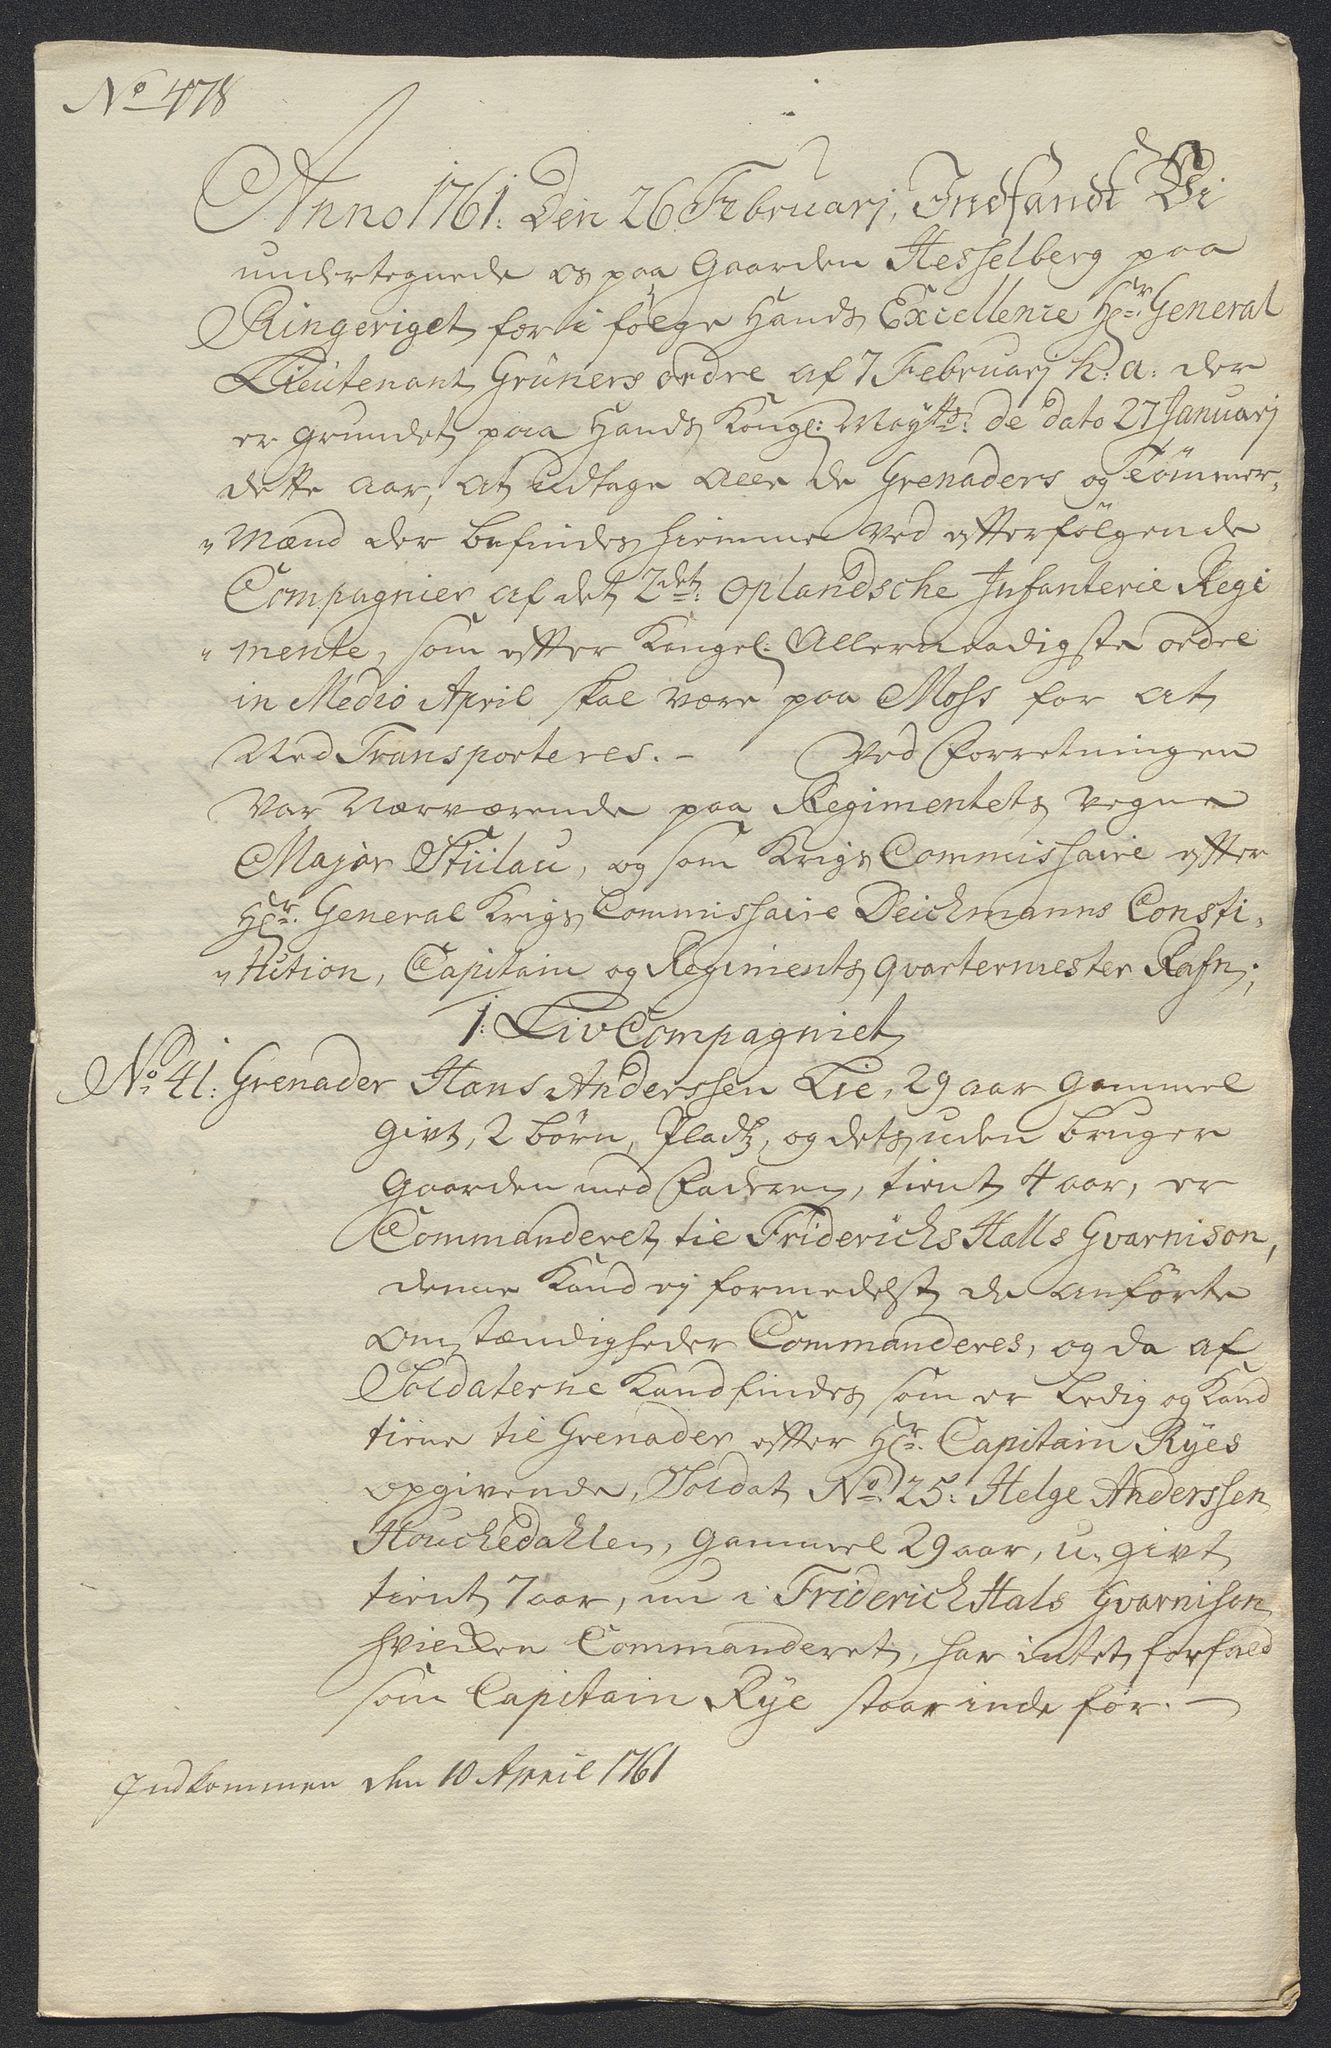 No 478
Anno 1761. Den 26 Februarj, Indfandt Vi
undertegnede os paa Gaarden Hesselberg paa
Ringeriget for i følge Hands Excellence Hr. General
Lieutenant Grüners ordre af 7 Februarj h: a: der
er grundet paa Hands Kongl: Maytts: de dato 27 Januarj
dette Aar, at udtage alle de Grenaders og Tömmer„
„mænd der befindes hiemme ved efterfölgende
Compagnier af det 2det: Oplandsche Infanterie Regi
„mente, som efter Kongel: Allernaadigste ordre
in Medio April skal være paa Moss for at
Ned Transporteres. – Ved Forretningen
var Nærværende paa Regimentets vegne
Major Stülau, og som Krigs Commissaire efter
Hr. General Krigs Commissaire Deichmanns Consti„
„tution, Capitain og Regiments qvartermester Rafn;
1: Liv Compagniet
No. 41: Grenader Hans Anderssen Lie, 29 aar gammel
givt, 2 börn, Pladtz, og dets uden bruger
Gaarden med Faderen, tient 4 aar, er
Commanderet til Friderichs Halls Gvarnison,
denne Kand ej formedelst de anförte
Omstændigheder Commanderes, og da af
Soldaterne Kand findes som er Ledig og Kand
tiene til Grenader efter Hr. Capitain Ryes
opgivende, Soldat No. 25: Helge Anderssen
Houchedahlen, gammel 29 aar, u-givt
tient 7 aar, nu i Friderich Hals Gvarnison
hvilken Commanderet, har intet forfald
som Capitain Rye staar inde for. –
Indkommen den 10 April 1761